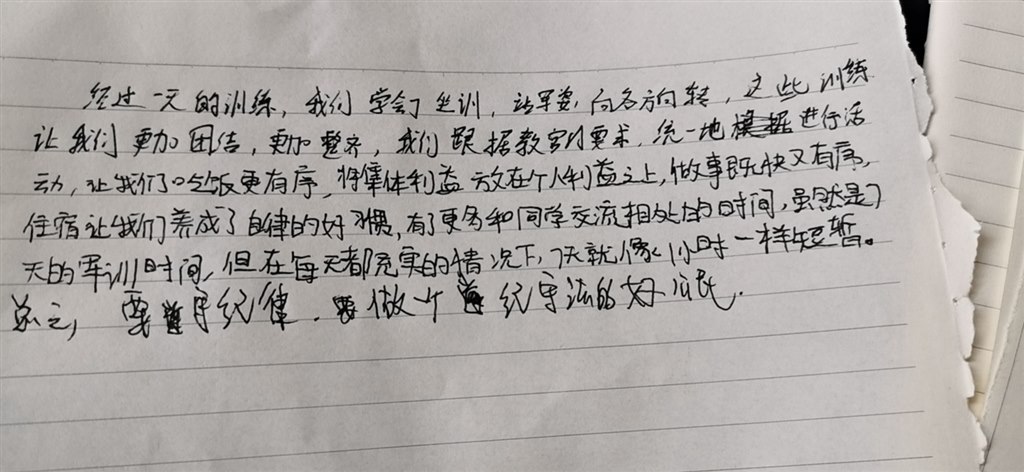 经过一天的训练，我们学会了坐训，站军姿，向各方向转，这些训练
让我们更加团结，更加整齐，我们跟据教官的要求，统一地进行活
动，让我们吃饭更有序，将集体利益放在个人利益之上，做事既快又有序，
住宿让我们养成了自律的好习惯，有了更多和同学交流相处的时间，虽然是7
天的军训时间，但在每天都充实的情况下，7天就像1小时一样短暂。
总之，要守纪律，做个纪守法的好公民.